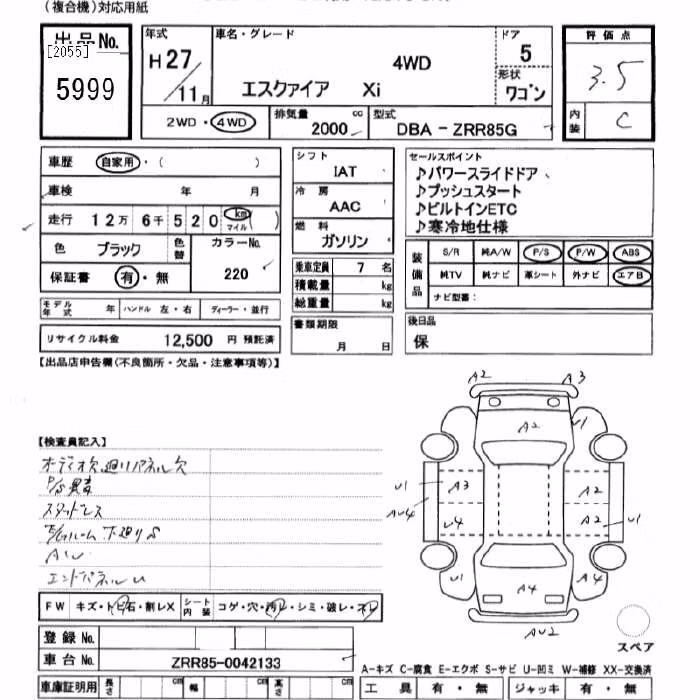 (複合機)対応用紙
出品No.
[2055]
5999
年式
H27/11月
車名・グレード
4WD
エスクァイア Xi
ドア
5
形状
ワゴン
評価点
3.5
内装
C
2WD・4WD
排気量
2000 cc
型式
DBA - ZRR85G
車歴 自家用・( )
車検 年 月
走行 12万6千520 km マイル( )
色 ブラック
色替
カラーNo.
220
保証書 有・無
モデル年式 年 ハンドル 左・右 ディーラー・並行
リサイクル料金 12,500 円 預託済
シフト
IAT
冷房
AAC
燃料
ガソリン
乗車定員 7 名
積載量 kg
総重量 kg
書類期限
月 日
セールスポイント
♪パワースライドドア
♪プッシュスタート
♪ビルトインETC
♪寒冷地仕様
装備品
S/R 純A/W P/S P/W ABS
純TV 純ナビ 革シート 外ナビ エアB
ナビ型番:
後日品
保
【出品店申告欄(不良箇所・欠品・注意事項等)】
【検査員記入】
オーディオ欠 廻りパネル欠
スタッドレス
下廻りS
AW
エンドパネルU
FW キズ・トビ石・割レX
シート内装 コゲ・穴・汚レ・シミ・破レ・スレ
登録No.
車台No. ZRR85-0042133
車庫証明用 長さ cm 幅 cm 高さ cm
A2 A3
A2 U1
U1 A3 A2
AU4 U4 A2 U1
U1 A4 A4
AU2
スペア
A-キズ C-腐食 E-エクボ S-サビ U-凹ミ W-補修 XX-交換済
工具 有・無 ジャッキ 有・無